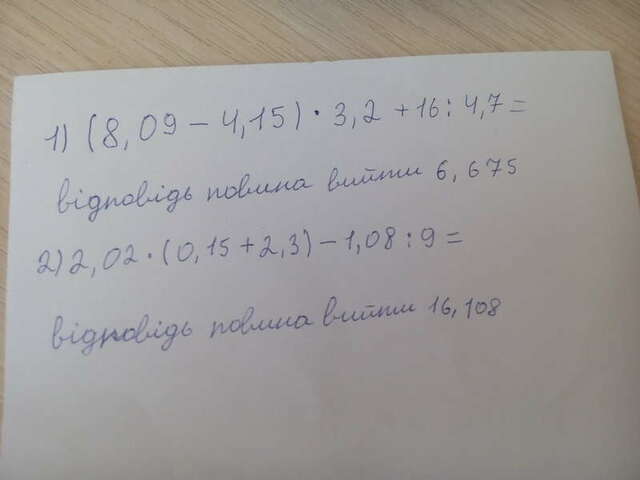 1) (8,09 - 4,15) · 3,2 + 16 : 4,7 =
відповідь повина вийти 6,675
2) 2,02 · (0,15 + 2,3) - 1,08 : 9 =
відповідь повина вийти 16,108